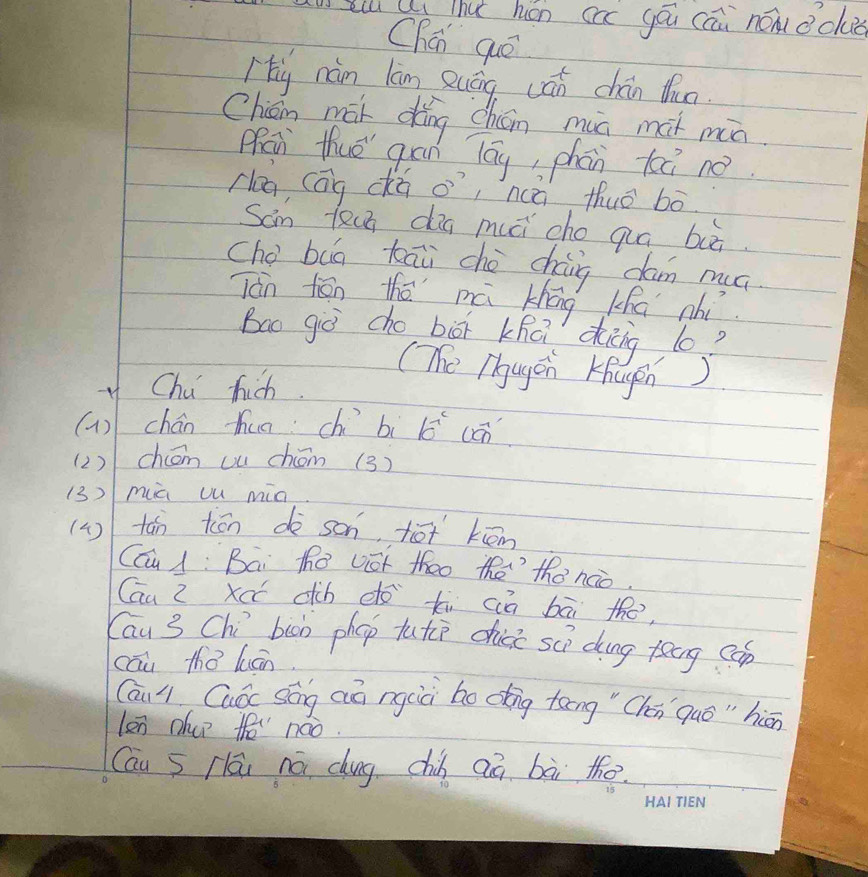 thực hiện các yêu cầu nêu ở dưới
Chốn quê
Mấy năm làm ruộng vẫn chân thua.
Chiêm mất đằng chiêm mùa mất mùa.
Phần thuế quan Tây, phần trả nợ.
Nửa công đứa ở, nửa thuê bò.
Sớm trưa dưa muối cho qua bữa.
Chợ búa trầu chè chẳng dám mua.
Tần tiện thế mà không khá nhỉ.
Bao giờ cho biết khỏi đường lo?
(Thơ Nguyễn Khuyến)
* Chú thích.
(1) chân thua: chỉ bị lỗ vốn
(2) chiêm vụ chiêm (3)
(3) mùa vụ mùa.
(4) tần tiện dè sẻn, tiết kiệm
Câu 1: Bài thơ viết theo thể thơ nào.
Câu 2 Xác định đề tài của bài thơ,
Câu 3 Chỉ biện pháp tu từ được sử dụng trong cặp
câu thơ luận.
Câu 4. Cuộc sống của người lao động trong "Chốn quê" hiện
lên như thế nào.
Câu 5 Nêu nội dung chính của bài thơ.
HAI TIEN